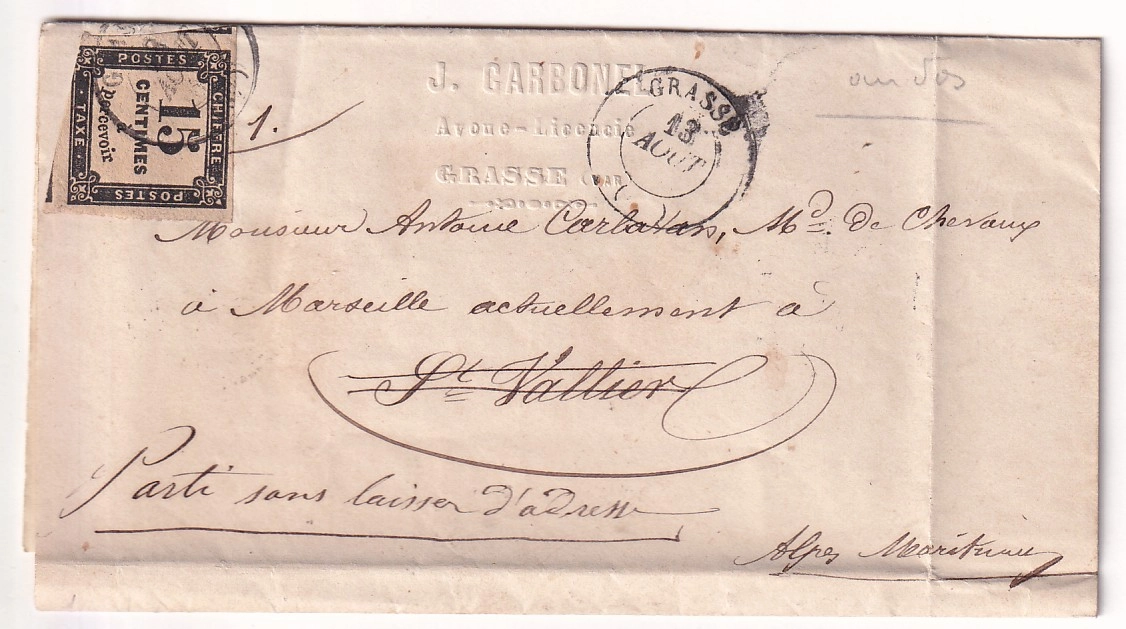 POSTES
CHIFFRE
TAXE
POSTES
15
CENTIMES
à percevoir
1.
J. CARBONEL
Avoué-Licencié
GRASSE (VAR)
GRASSE
13
AOUT
au dos
Monsieur Antoine Carlavan, Md. de Chevaux
à Marseille actuellement à
St Vallier
Parti sans laisser d'adresse
Alpes Maritimes